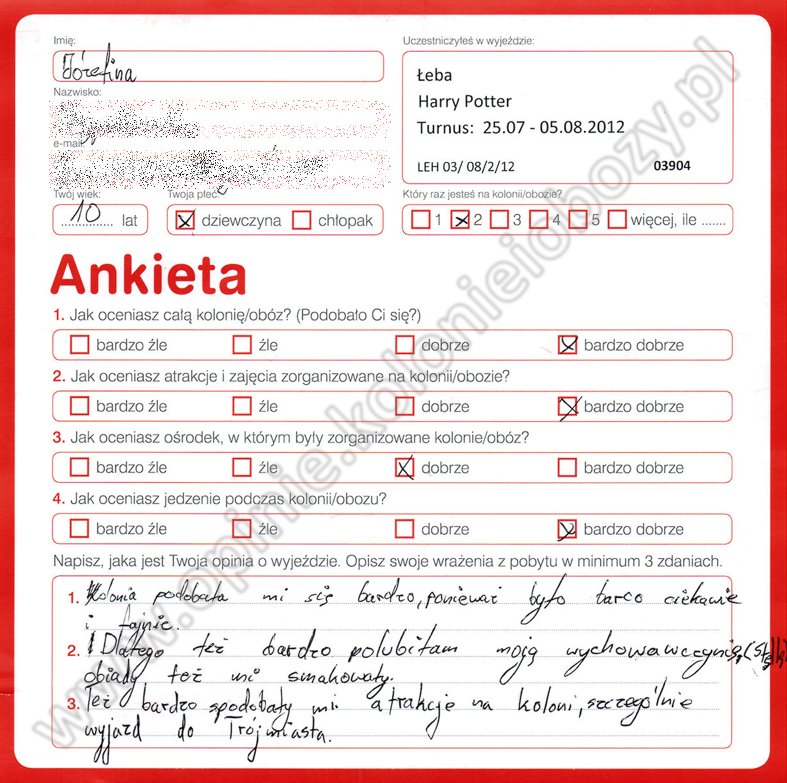 Imię:
Józefina
Uczestniczyłeś w wyjeździe:
Łeba
Harry Potter
Turnus: 25.07 - 05.08.2012
LEH 03/ 08/2/12 03904
Nazwisko:
e-mail:
Twój wiek:
10 lat
Twoja płeć?
dziewczyna chłopak
Który raz jesteś na kolonii/obozie?
1 2 3 4 5 więcej, ile .......
Ankieta
1. Jak oceniasz całą kolonię/obóz? (Podobało Ci się?)
bardzo źle źle dobrze bardzo dobrze
2. Jak oceniasz atrakcje i zajęcia zorganizowane na kolonii/obozie?
bardzo źle źle dobrze bardzo dobrze
3. Jak oceniasz ośrodek, w którym byly zorganizowane kolonie/obóz?
bardzo źle źle dobrze bardzo dobrze
4. Jak oceniasz jedzenie podczas kolonii/obozu?
bardzo źle źle dobrze bardzo dobrze
Napisz, jaka jest Twoja opinia o wyjeździe. Opisz swoje wrażenia z pobytu w minimum 3 zdaniach.
1. Kolonia podobała mi się bardzo, ponieważ było barco ciekawie
i fajnie.
2. Dlatego też bardzo polubiłam moją wychowawczynię,
obiady też mi smakowały.
3. Też bardzo spodobały mi atrakcje na koloni, szczególnie
wyjazd do Trójmiasta.
www.opinie.kolonieiobozy.pl